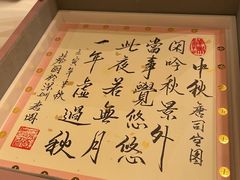 中秋唐司空圖
閑吟秋景外
萬事覺悠悠
此夜若無月
一年虛過秋
壬寅年中秋